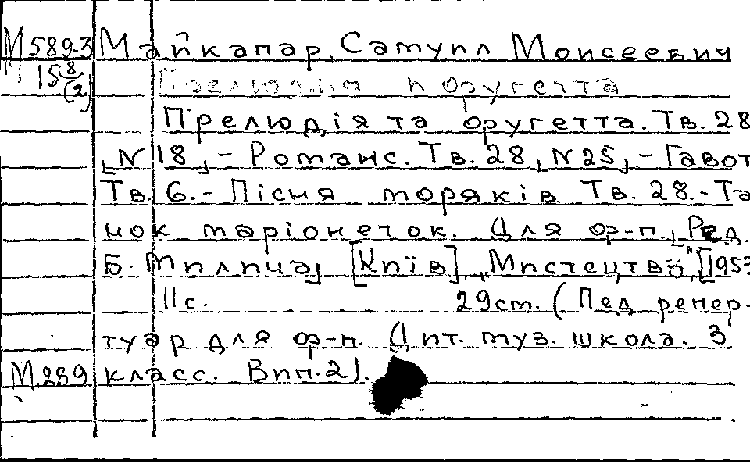 М 589-3 Майкапар, Самуил Моисеевич
М 15 8/(2) Прелюдия и фугетта
Прелюдія та фугетта. Тв. 28
[N 18] - Романс. Тв. 28, [N25] - Гавот
Тв. 6. - Пісня моряків Тв. 28. - Та
нок маріонеток. Для ф-п. [Ред.
Б. Милича] [Київ] „Мистецтво", [195
11 с. 29 см. (Пед репер-
туар для ф-п. Дит. муз. школа. 3
М 289 класс. Вип. 2).